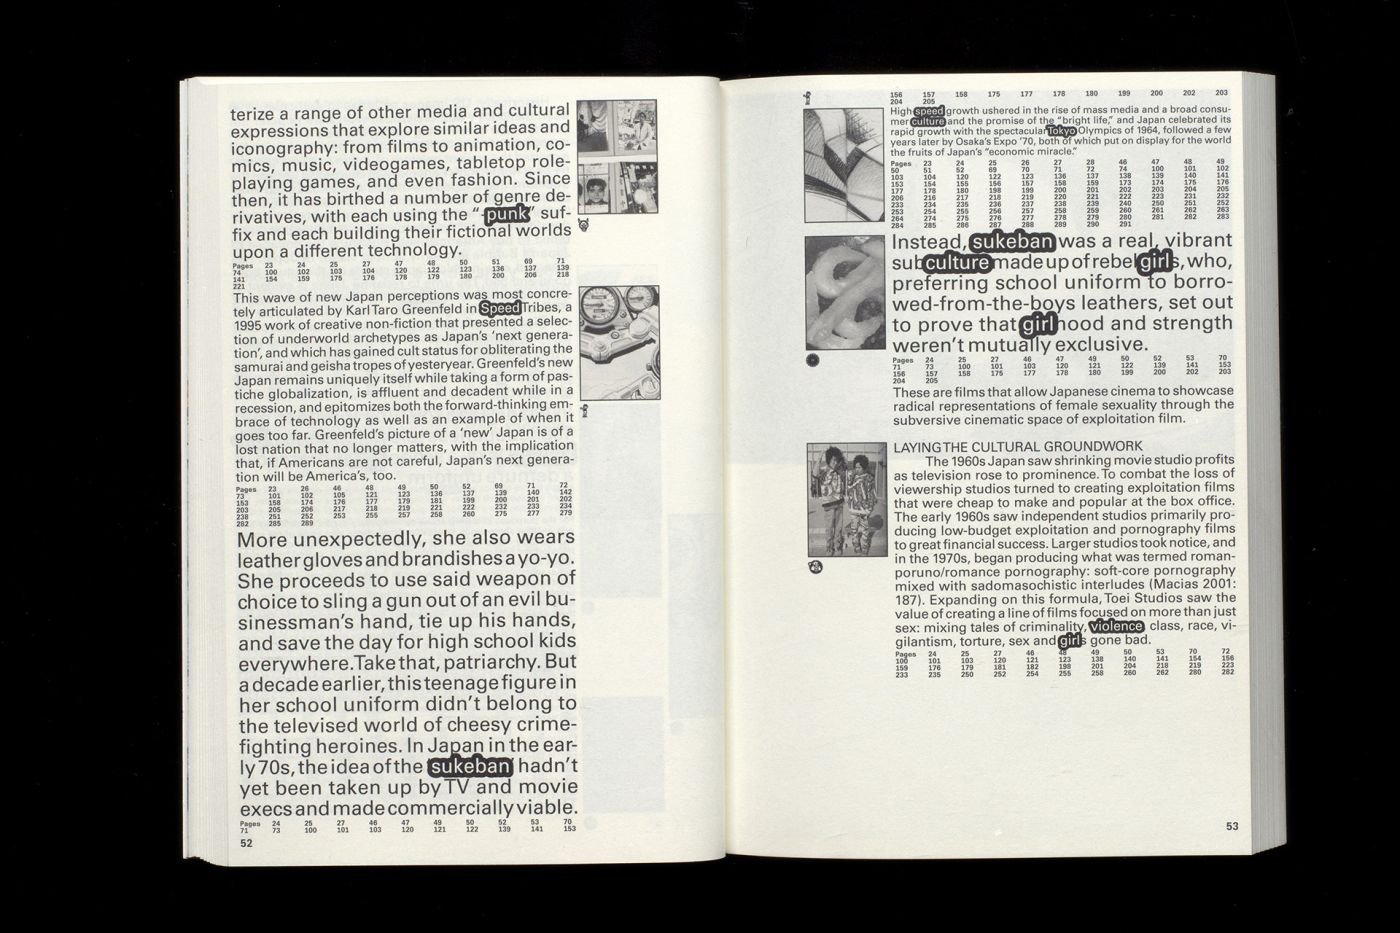 terize a range of other media and cultural
expressions that explore similar ideas and
iconography: from films to animation, co-
mics, music, videogames, tabletop role-
playing games, and even fashion. Since
then, it has birthed a number of genre de-
rivatives, with each using the "-punk" suf-
fix and each building their fictional worlds
upon a different technology.
Pages 23 24 25 27 47 48 50 51 69 71
74 100 102 103 104 120 122 123 136 137 139
141 154 159 175 176 178 179 180 200 206 218
221
This wave of new Japan perceptions was most concre-
tely articulated by Karl Taro Greenfeld in Speed Tribes, a
1995 work of creative non-fiction that presented a selec-
tion of underworld archetypes as Japan's 'next genera-
tion', and which has gained cult status for obliterating the
samurai and geisha tropes of yesteryear. Greenfeld's new
Japan remains uniquely itself while taking a form of pas-
tiche globalization, is affluent and decadent while in a
recession, and epitomizes both the forward-thinking em-
brace of technology as well as an example of when it
goes too far. Greenfeld's picture of a 'new' Japan is of a
lost nation that no longer matters, with the implication
that, if Americans are not careful, Japan's next genera-
tion will be America's, too.
Pages 23 26 46 48 49 50 52 69 71 72
73 101 102 105 121 123 136 137 139 140 142
153 158 174 176 177 179 181 199 200 201 202
203 205 206 217 218 219 221 222 232 233 234
238 251 252 253 255 257 258 260 275 277 279
282 285 289
More unexpectedly, she also wears
leather gloves and brandishes a yo-yo.
She proceeds to use said weapon of
choice to sling a gun out of an evil bu-
sinessman's hand, tie up his hands,
and save the day for high school kids
everywhere. Take that, patriarchy. But
a decade earlier, this teenage figure in
her school uniform didn't belong to
the televised world of cheesy crime-
fighting heroines. In Japan in the ear-
ly 70s, the idea of the sukeban hadn't
yet been taken up by TV and movie
execs and made commercially viable.
Pages 24 25 27 46 47 49 50 52 53 70
71 73 100 101 103 120 121 122 139 141 153
52
156 157 158 175 177 178 180 199 200 202 203
204 205
High speed growth ushered in the rise of mass media and a broad consu-
mer culture and the promise of the "bright life," and Japan celebrated its
rapid growth with the spectacular Tokyo Olympics of 1964, followed a few
years later by Osaka's Expo '70, both of which put on display for the world
the fruits of Japan's "economic miracle."
Pages 23 24 25 26 27 28 46 47 48 49
50 51 52 69 70 71 72 74 100 101 102
103 104 120 122 123 136 137 138 139 140 141
153 154 155 156 157 158 159 173 174 175 176
177 178 180 198 199 200 201 202 203 204 205
206 216 217 218 219 220 221 222 223 231 232
233 234 235 236 237 238 239 240 250 251 252
253 254 255 256 257 258 259 260 261 262 263
264 274 275 276 277 278 279 280 281 282 283
284 285 286 287 288 289 290 291
Instead, sukeban was a real, vibrant
subculture made up of rebel girls, who,
preferring school uniform to borro-
wed-from-the-boys leathers, set out
to prove that girlhood and strength
weren't mutually exclusive.
Pages 24 25 27 46 47 49 50 52 53 70
71 73 100 101 103 120 121 122 139 141 153
156 157 158 175 177 178 180 199 200 202 203
204 205
These are films that allow Japanese cinema to showcase
radical representations of female sexuality through the
subversive cinematic space of exploitation film.
LAYING THE CULTURAL GROUNDWORK
The 1960s Japan saw shrinking movie studio profits
as television rose to prominence. To combat the loss of
viewership studios turned to creating exploitation films
that were cheap to make and popular at the box office.
The early 1960s saw independent studios primarily pro-
ducing low-budget exploitation and pornography films
to great financial success. Larger studios took notice, and
in the 1970s, began producing what was termed roman-
poruno/romance pornography: soft-core pornography
mixed with sadomasochistic interludes (Macias 2001:
187). Expanding on this formula, Toei Studios saw the
value of creating a line of films focused on more than just
sex: mixing tales of criminality, violence class, race, vi-
gilantism, torture, sex and girls gone bad.
Pages 24 25 27 46 48 49 50 53 70 72
100 101 103 120 121 123 138 140 141 154 156
159 176 179 181 182 198 201 204 218 219 223
233 235 250 252 254 255 258 260 262 280 282
53